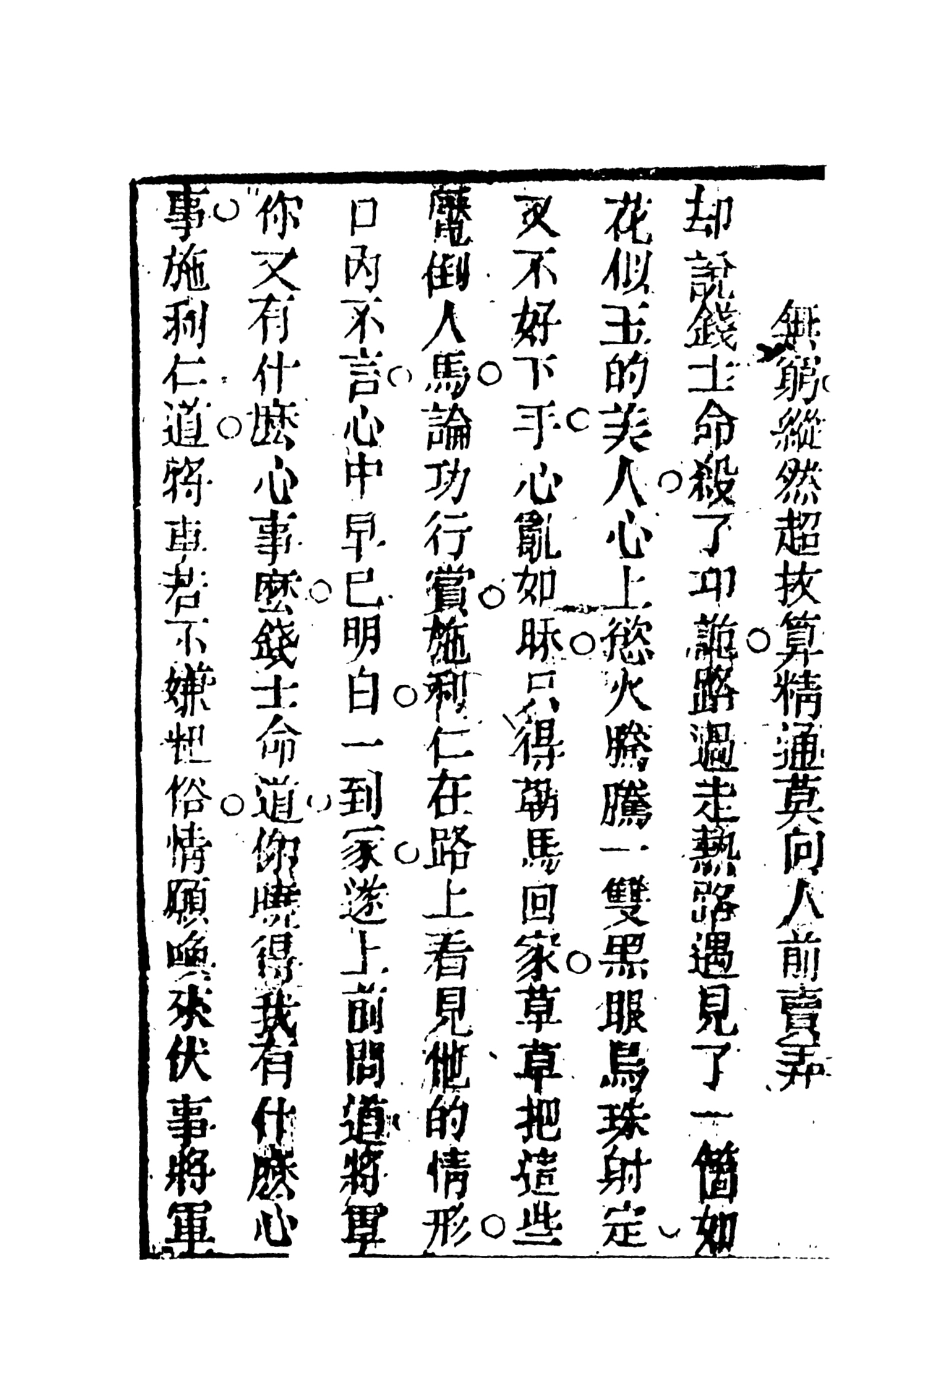 無窮縱然超抜算精通莫向人前賣弄
却說錢士命殺了卭詭路過走熱路遇見了一箇如
花似玉的美人心上慾火騰騰一雙黑眼烏珠射定
又不好下手心亂如眿只得勒馬回家草草把這些
魔倒人馬論功行賞施利仁在路上看見他的情形
口內不言心中早已明白一到家遂上前問道將軍
你又有什麽心事麽錢士命道你曉得我有什麽心
事施利仁道將軍若不嫌粗俗情願喚來伏事將軍